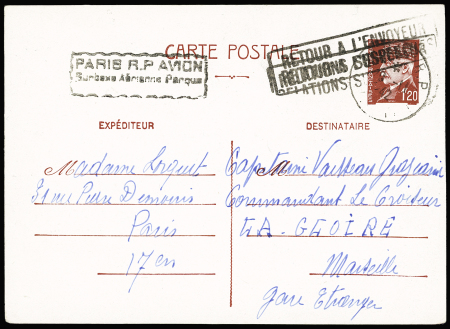 CARTE POSTALE
RETOUR A L'ENVOYEUR
RELATIONS SUSPENDUES
RELATIONS
PARIS R.P AVION
Surtaxe Aérienne Perçue
1f20
EXPÉDITEUR
DESTINATAIRE
Madame Lorquet
31 rue Pierre Demours
Paris
17 em
Capitaine Vaisseau
Commandant Le Croiseur
LA-GLOIRE
Marseille
gare Etranger